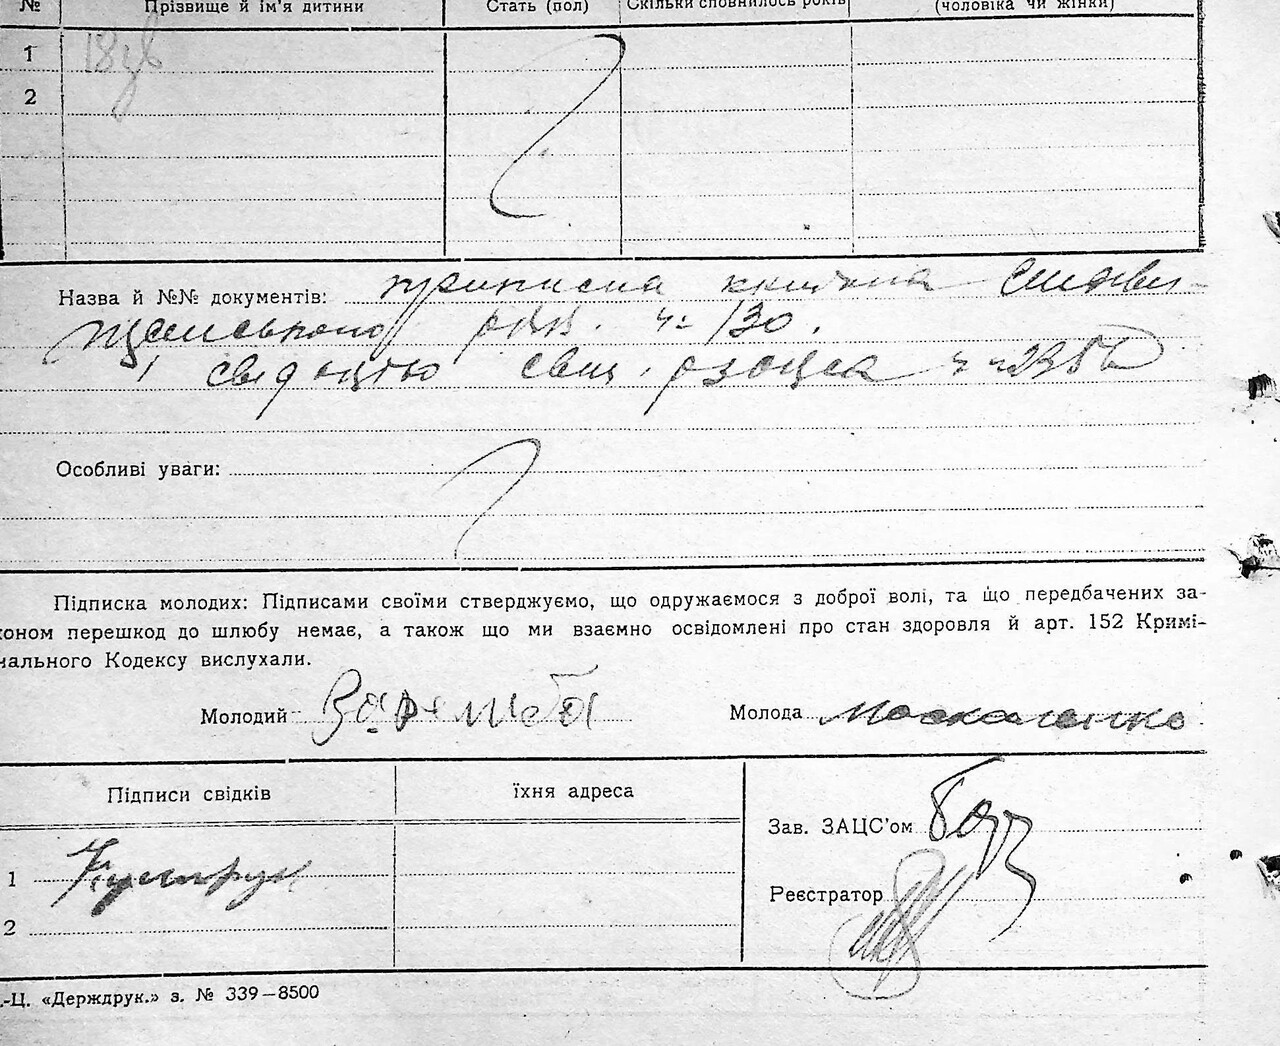 № Прізвище й ім'я дитини Стать (пол) Скільки сповнилось років (чоловіка чи жінки)
1
2
Назва й №№ документів: приписна книжка Стави-
щанського РВК. ч. 130.
і свідоцтво ч 2356
Особливі уваги:
Підписка молодих: Підписами своїми стверджуємо, що одружаємося з доброї волі, та що передбачених за-
коном перешкод до шлюбу немає, а також що ми взаємно освідомлені про стан здоровля й арт. 152 Кримі-
нального Кодексу вислухали.
Молодий Заремба Молода Москаленко
Підписи свідків їхня адреса
Зав. ЗАЦС'ом
1
Реєстратор
2
.-Ц. «Держдрук.» з. № 339—8500